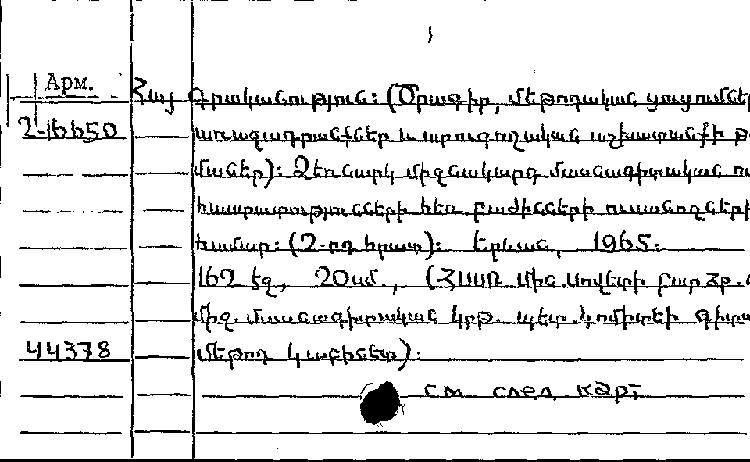 Арм.
Հայ գրականություն: (Ծրագիր, մեթոդական ցուցումներ
2-16650
առաջադրանքներ և ստուգողական աշխատանքի թ
մաներ): Ձեռնարկ միջնակարգ մասնագիտական ու
հաստատությունների հեռ. բաժինների ուսանողների
համար: (2-րդ հրատ): Երևան, 1965.
162 էջ, 20սմ., (ՀՍՍՌ Մին. Սովետի բար. և
միջ. մասնագիտական կրթ. պետ. կոմիտեի գիտա
44378
մեթոդ կաբինետ):
см след карт